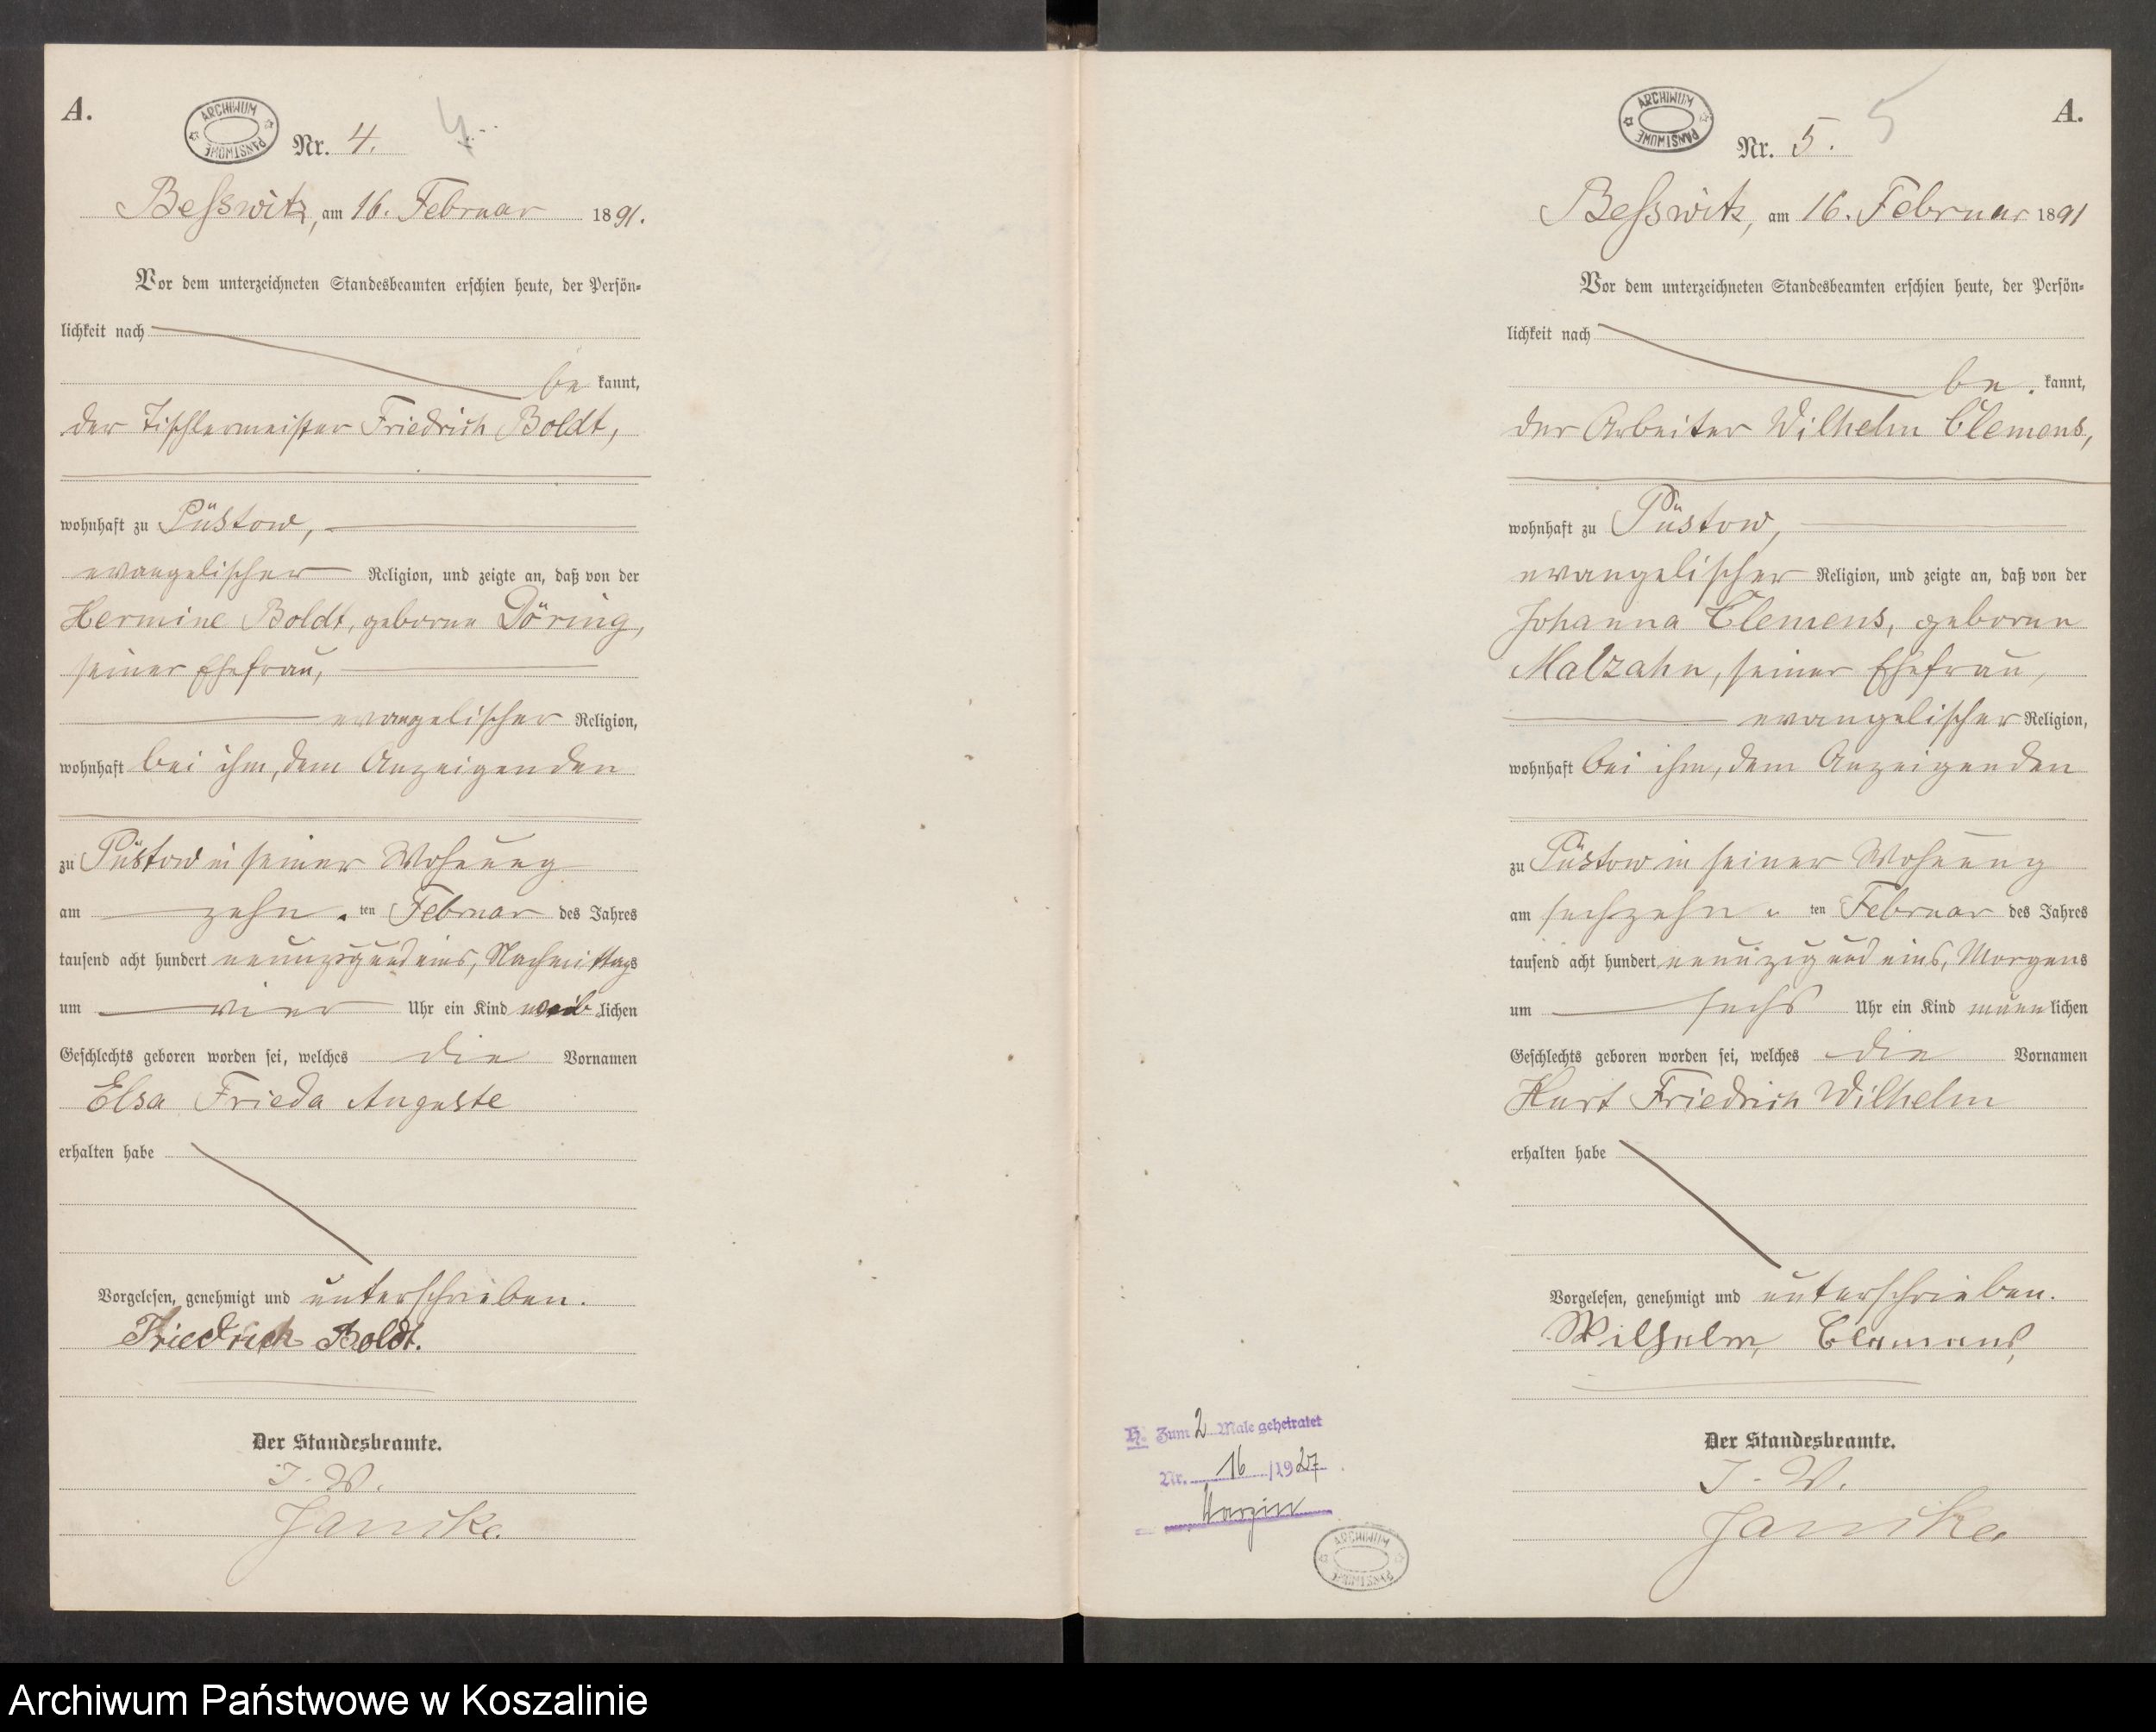 A.
ARCHIWUM PAŃSTWOWE
Nr. 4.
4
Besswitz, am 16. Februar 1891.
Vor dem unterzeichneten Standesbeamten erschien heute, der Persön-
lichkeit nach
be kannt,
der Tischlermeister Friedrich Boldt,
wohnhaft zu Püstow,
evangelischer Religion, und zeigte an, daß von der
Hermine Boldt, geborne Döring,
seiner Ehefrau,
evangelischer Religion,
wohnhaft bei ihm, dem Anzeigenden
zu Püstow in seiner Wohnung
am zehn ten Februar des Jahres
tausend acht hundert neunzig und eins, Nachmittags
um vier Uhr ein Kind weib lichen
Geschlechts geboren worden sei, welches die Vornamen
Elsa Frieda Auguste
erhalten habe
Vorgelesen, genehmigt und unterschrieben.
Friedrich Boldt.
Der Standesbeamte.
I. V.
Janike.
ARCHIWUM PAŃSTWOWE
A.
Nr. 5.
5
Besswitz, am 16. Februar 1891
Vor dem unterzeichneten Standesbeamten erschien heute, der Persön-
lichkeit nach
be kannt,
der Arbeiter Wilhelm Clemens,
wohnhaft zu Püstow,
evangelischer Religion, und zeigte an, daß von der
Johanna Clemens, geborne
Malzahn, seiner Ehefrau,
evangelischer Religion,
wohnhaft bei ihm, dem Anzeigenden
zu Püstow in seiner Wohnung
am sechzehn ten Februar des Jahres
tausend acht hundert neunzig und eins, Morgens
um sechs Uhr ein Kind männ lichen
Geschlechts geboren worden sei, welches die Vornamen
Kurt Friedrich Wilhelm
erhalten habe
Vorgelesen, genehmigt und unterschrieben.
Wilhelm Clemens,
Der Standesbeamte.
I. V.
Janike.
H. Zum 2 Male geheiratet
Nr. 16 /1927
Warzin
ARCHIWUM PAŃSTWOWE
Archiwum Państwowe w Koszalinie